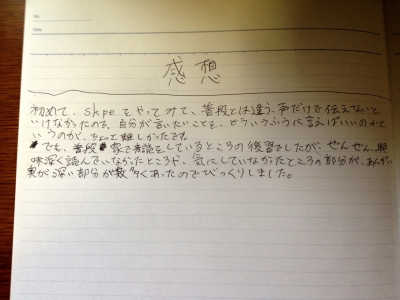 No.
Date
感想
初めて、skpeをやってみて、普段とは違う、声だけで伝えないと
いけなかったので、自分が言いたいことを、どういうふうに言えばいいのかと
いうのが、ちょっと難しかったです。
でも、普段家で音読をしているところの復習でしたが、ぜんぜん、興
味深く読んでいなかったところや、気にしていなかったところの部分が、あんがい
奥が深い部分が数多くあったのでびっくりしました。